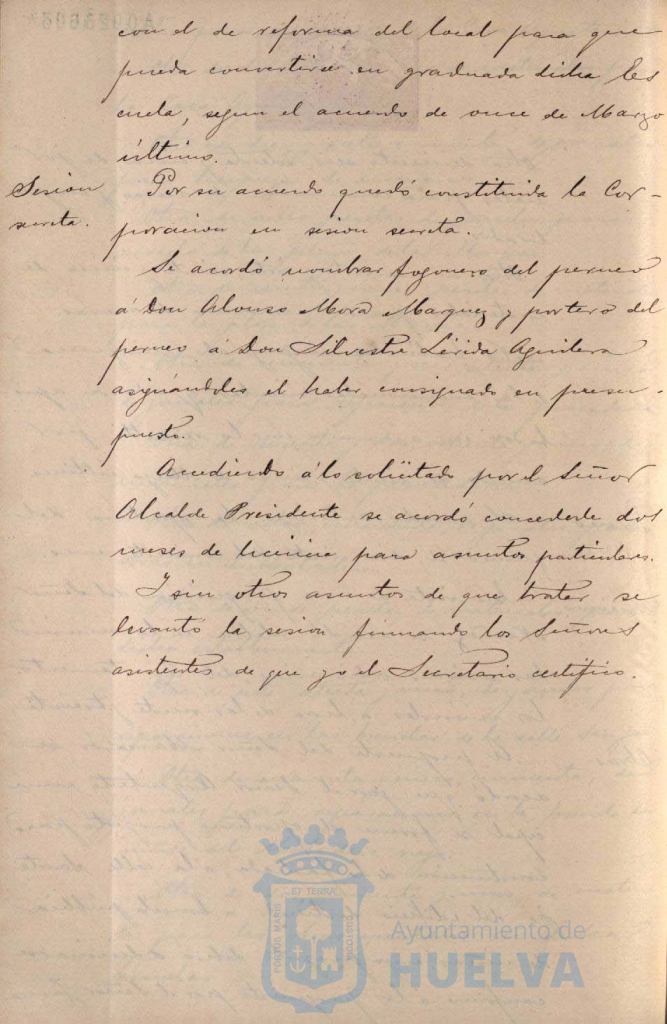 con el de reforma del local para que
pueda convertirse en graduada dicha Es
cuela, segun el acuerdo de once de Marzo
último.
Sesion
secreta.
Por su acuerdo quedó constituida la Cor-
poracion en sesion secreta.
Se acordó nombrar fogonero del perneo
á Don Alonso Mora Marquez y portero del
perneo á Don Silvestre Lérida Aguilera
asignándoles el haber consignado en presu-
puesto.
Accediendo á lo solicitado por el Señor
Alcalde Presidente se acordó concederle dos
meses de licencia para asuntos particulares.
Y sin otros asuntos de que tratar se
levantó la sesion firmando los Señores
asistentes de que yo el Secretario certifico.
PORTUS MARIS
ET TERRA
CUSTODIA
Ayuntamiento de
HUELVA